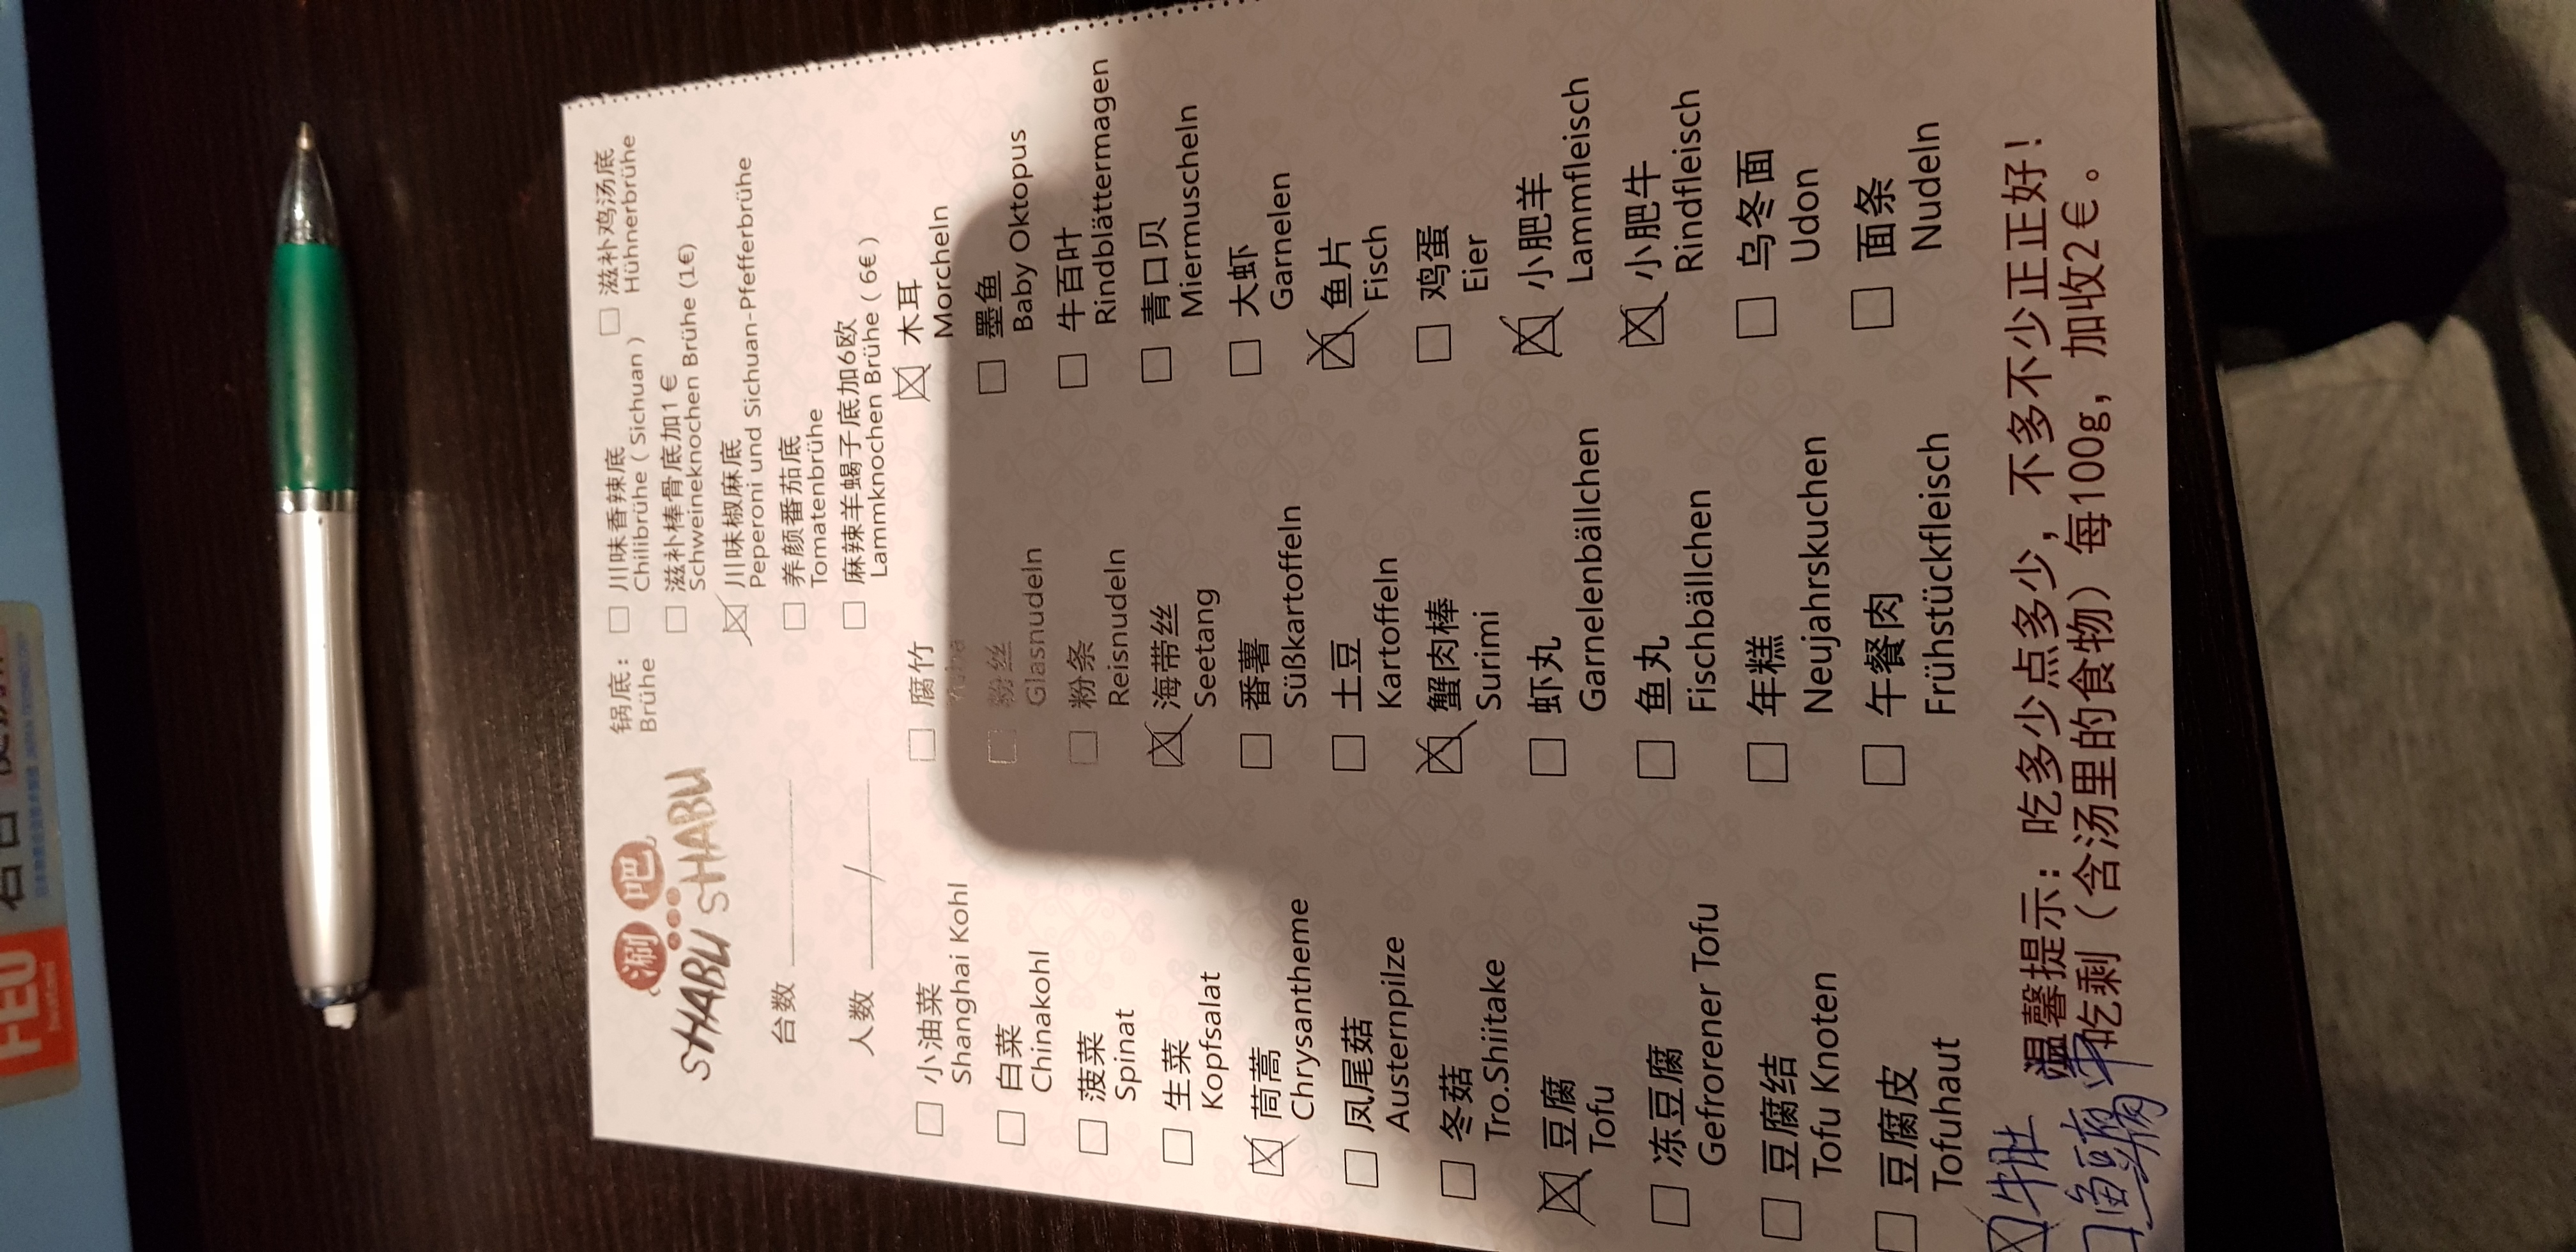 FEU
iwatani
涮吧
SHABU SHABU
台数
人数 /
锅底：
Brühe
川味香辣底
Chilibrühe ( Sichuan )
滋补鸡汤底
Hühnerbrühe
滋补棒骨底加1 €
Schweineknochen Brühe (1€)
川味椒麻底
Peperoni und Sichuan-Pfefferbrühe
养颜番茄底
Tomatenbrühe
麻辣羊蝎子底加6欧
Lammknochen Brühe ( 6€ )
小油菜
Shanghai Kohl
白菜
Chinakohl
菠菜
Spinat
生菜
Kopfsalat
茼蒿
Chrysantheme
凤尾菇
Austernpilze
冬菇
Tro.Shiitake
豆腐
Tofu
冻豆腐
Gefrorener Tofu
豆腐结
Tofu Knoten
豆腐皮
Tofuhaut
牛肚
鱼豆腐
腐竹
Yuba
粉丝
Glasnudeln
粉条
Reisnudeln
海带丝
Seetang
番薯
Süßkartoffeln
土豆
Kartoffeln
蟹肉棒
Surimi
虾丸
Garnelenbällchen
鱼丸
Fischbällchen
年糕
Neujahrskuchen
午餐肉
Frühstückfleisch
木耳
Morcheln
墨鱼
Baby Oktopus
牛百叶
Rindblättermagen
青口贝
Miermuscheln
大虾
Garnelen
鱼片
Fisch
鸡蛋
Eier
小肥羊
Lammfleisch
小肥牛
Rindfleisch
乌冬面
Udon
面条
Nudeln
温馨提示：吃多少点多少，不多不少正正好！
吃剩（含汤里的食物）每100g，加收2€。